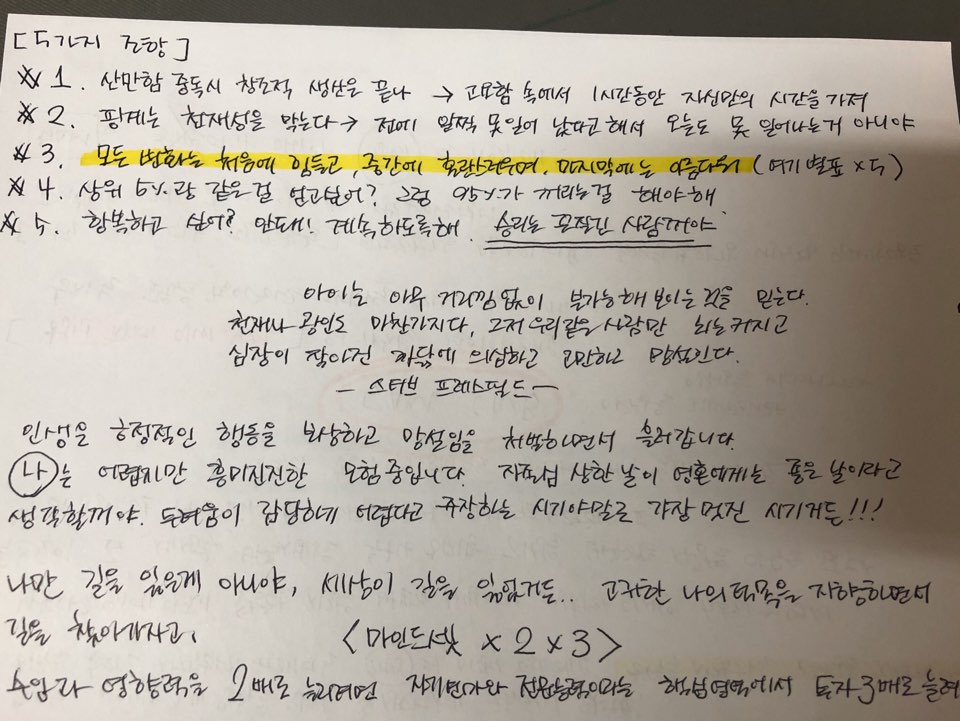 [5가지 조항]
1. 산만함 중독시 창조적 생산은 끝나 → 고요함 속에서 1시간동안 자신만의 시간을 가져
2. 핑계는 천재성을 막는다 → 전에 일찍 못일어 났다고해서 오늘도 못 일어나는거 아니야
3. 모든 변화는 처음에 힘들고, 중간에 혼란스러우며, 마지막에는 아름다워 (여기 별표 x5)
4. 상위 5%랑 같은걸 얻고싶어? 그럼 95%가 꺼리는걸 해야해
5. 항복하고 싶어? 안돼! 계속하도록해. 승리는 끈질긴 사람꺼야
아이는 아무 거리낌없이 불가능해 보이는 것을 믿는다.
천재나 광인도 마찬가지다, 그저 우리같은 사람만 뇌는커지고
심장이 작아진 까닭에 의심하고 고민하고 망설인다.
- 스티브 프레스필드 -
인생은 긍정적인 행동을 보상하고 망설임을 처벌하면서 흘러갑니다.
나는 어렵지만 흥미진진한 모험중입니다. 자존심 상한 날이 영혼에게는 좋은 날이라고
생각할꺼야. 두려움이 감당하게 어렵다고 주장하는 시기야말로 가장 멋진 시기거든!!!
나만 길을 잃은게 아니야, 세상이 길을 잃었거든.. 고귀한 나의 덕목을 지향하면서
길을 찾아가자고.
<마인드셋 x2x3>
수입과 영향력을 2배로 늘리려면 자기연마와 전문능력이라는 핵심영역에서 투자 3배로 늘려